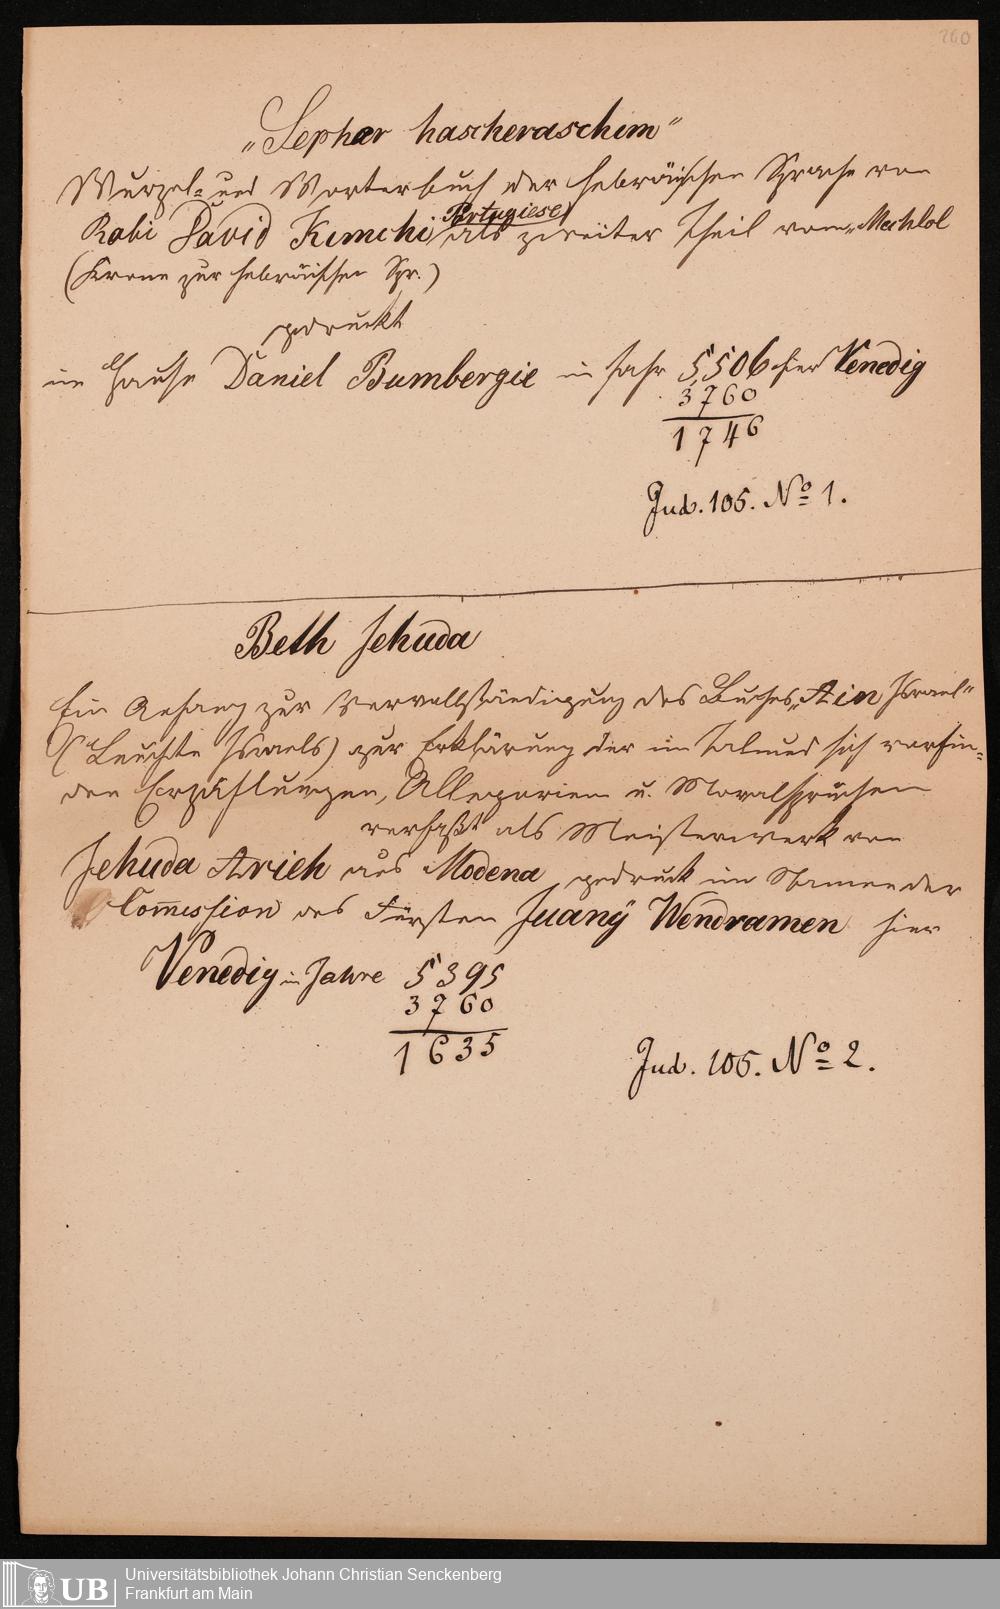 260
„Sepher hascheraschim"
Wurzel- und Worterbuch der hebräischen Sprache von
Rabi David Kimchi (Portugiese) als zweiter Theil vom „Mechlol
(Krone zur hebräischen Spr.)
gedruckt
im Hause Daniel Bumbergie im Jahr 5,506 hier Venedig
3760
1746
Jud. 105. No 1.
Beth Jehuda
Ein Anhang zur Vervollständigung des Buches „Ain Israel"
(Leuchte Israels) zur Erklärung der im Talmud sich vorfin-
den Erzählungen, Allegorien u. Moralsprüchen
verfaßt als Meisterwerk von
Jehuda Arieh aus Modena gedruck im Namen der
Com̅ission des Fürsten Juany Wendramen hier
Venedig in Jahre 5395
3760
1635
Jud. 105. No 2.
UB Universitätsbibliothek Johann Christian Senckenberg
Frankfurt am Main